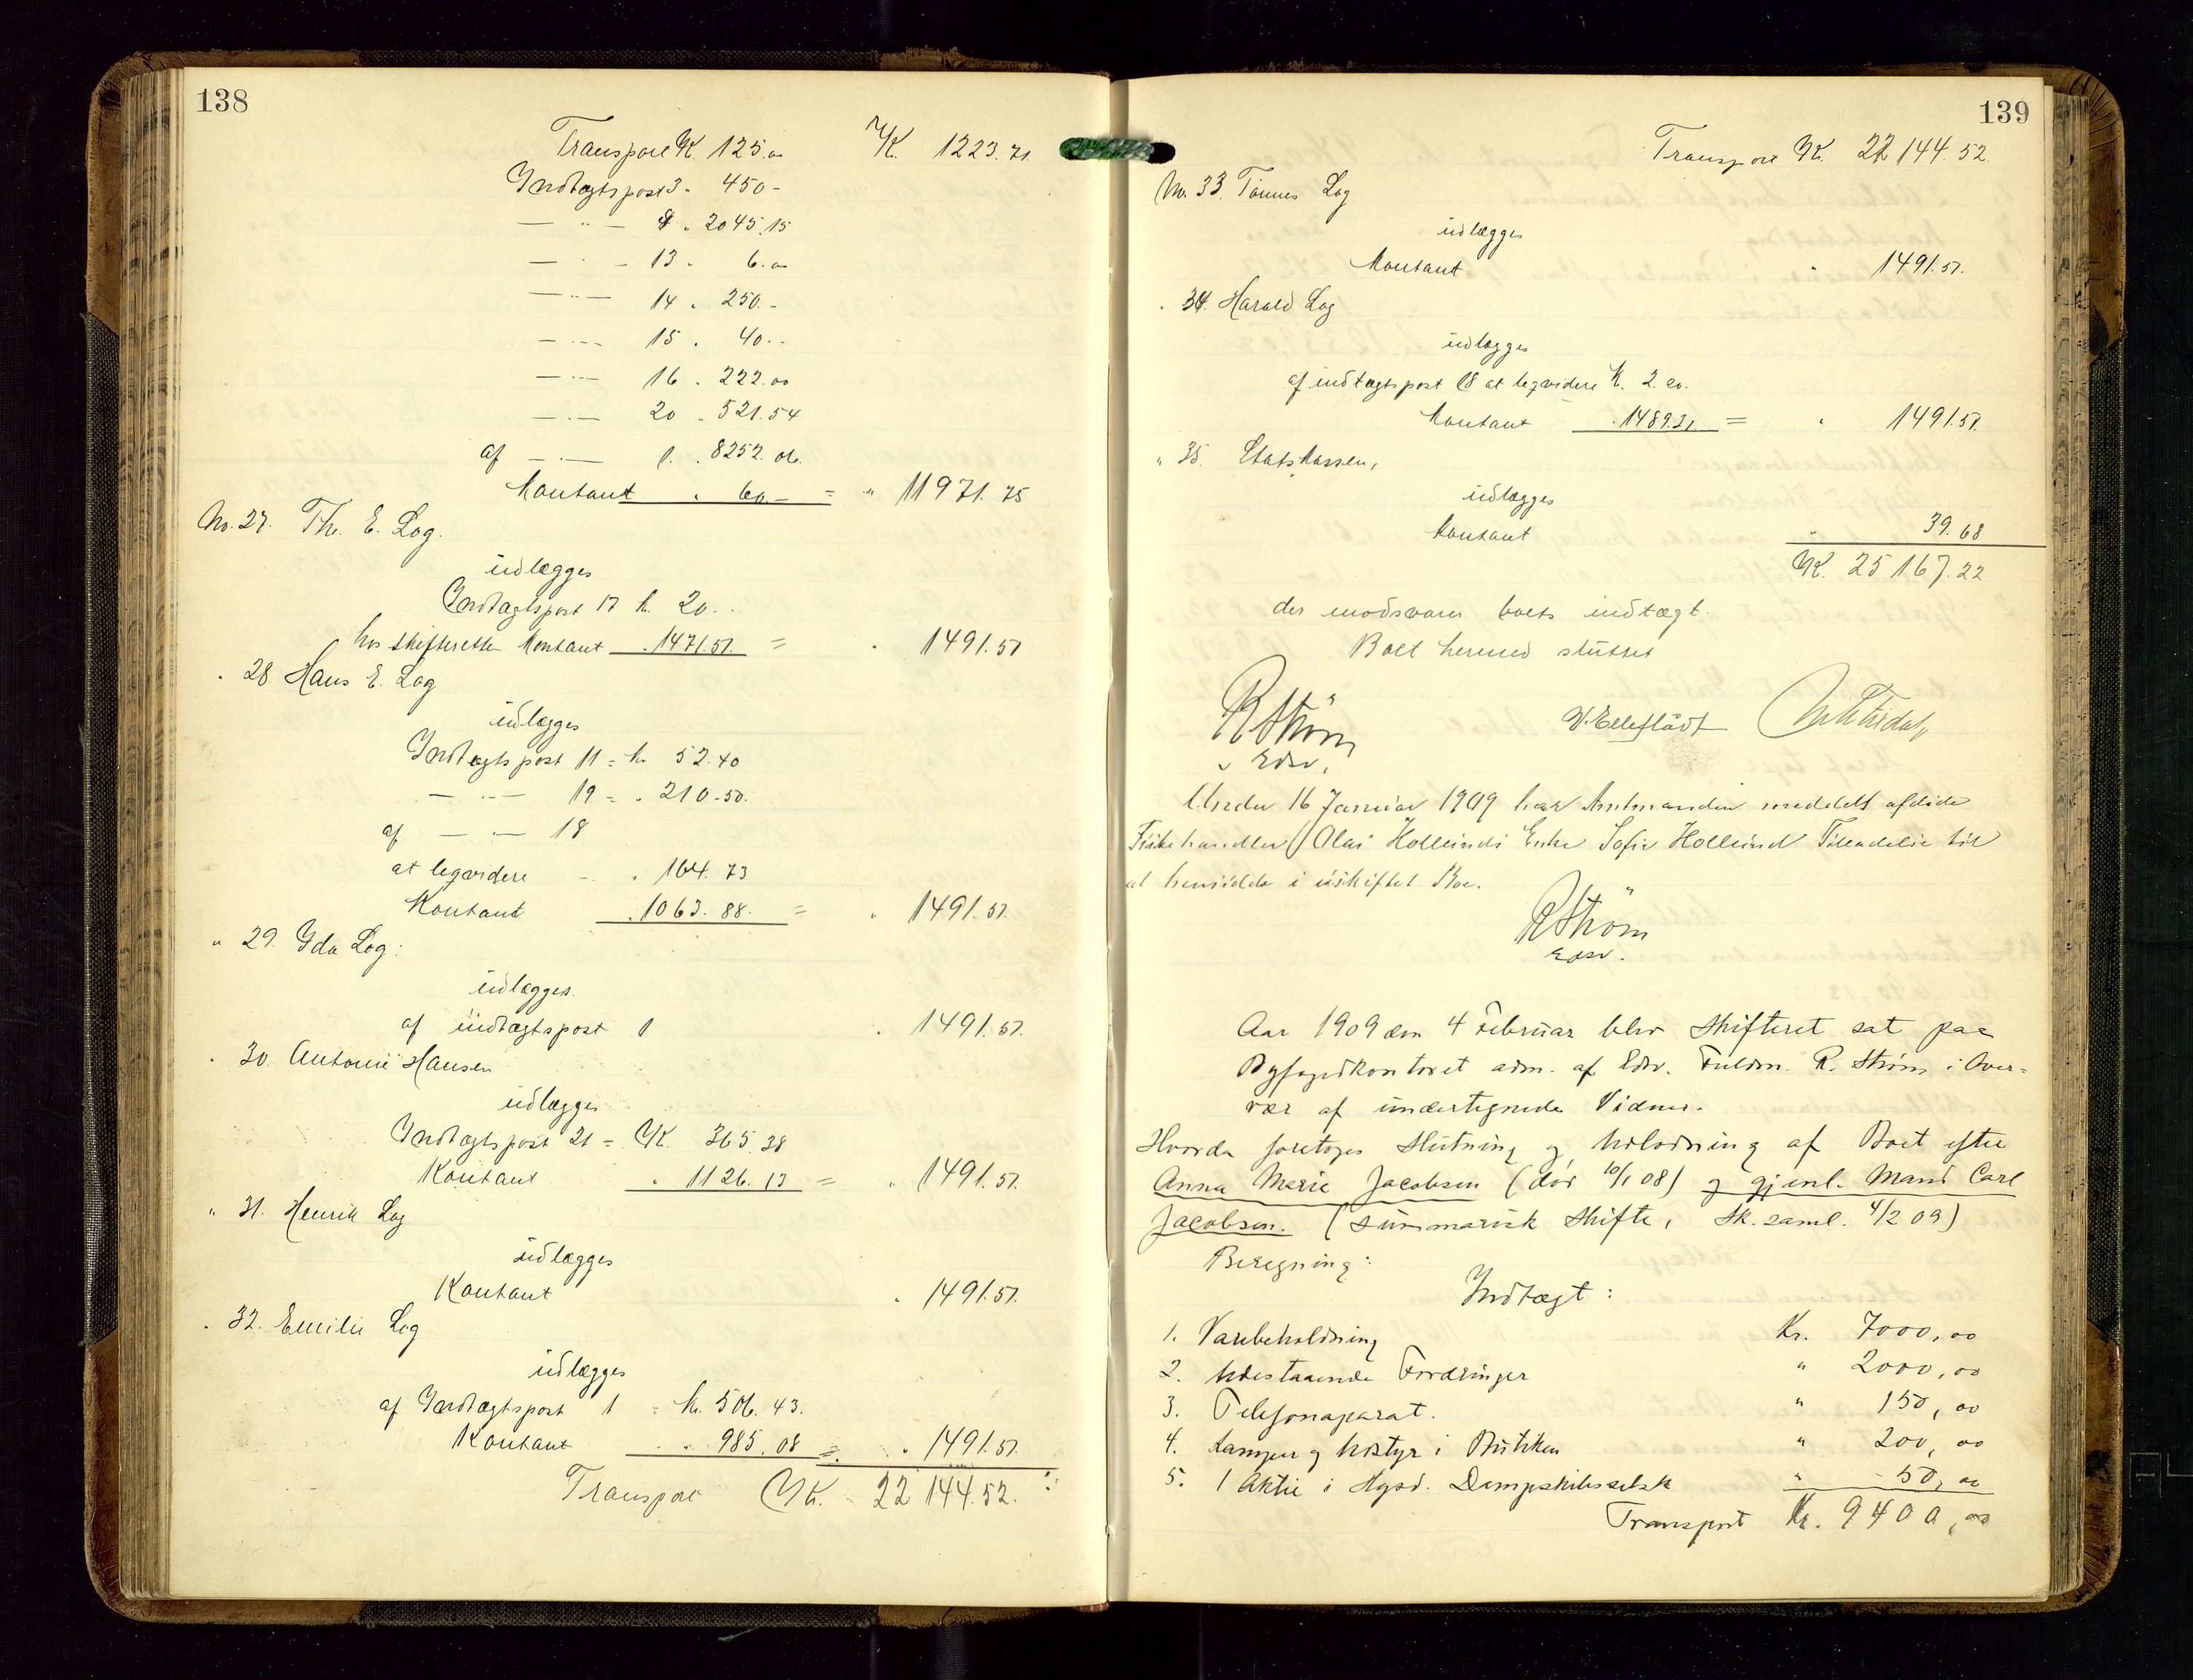 138
Transport K. 125.00 K. 1223.71
Indtægtspost 3. 450-
— " — 8 " 2045.15
— " — 13 " 6.00
— " — 14 " 250.-
— " — 15 " 40.-
— " — 16 " 222.00
— " — 20 " 521.54
af — " — 1. " 8252.06.
Kontant " 60.- = " 11971.75
No. 27. Th. E. Log.
udlægges
Indtægtspost 17 k. 20.-
hos skifteretten Kontant " 1471.51. = " 1491.51
" 28. Hans E. Log
udlægges
Indtægtspost 11 = k. 52.40
— " — 19 = " 210.50.
af — " — 18
at legvidere " 164.73
Kontant " 1063.88. = " 1491.51.
" 29. Ida Log:
udlægges.
af indtægtspost 1 " 1491.51.
" 30. Antonie Hansen
udlægges
Indtægtspost 21 = K. 365.38
Kontant " 1126.13 = " 1491.51.
" 31. Henrik Log
udlægges
Kontant " 1491.51.
" 32. Emilie Log
udlægges
af Indtægtspost 1 = k. 506.43.
Kontant " 985.08 = " 1491.51.
Transport K. 22144.52.
139
Transport K. 22144.52
No. 33. Tønnes Log
udlægges
Kontant " 1491.51.
" 34. Harald Log
udlægges
af indtægtspost 18 at legvidere K. 2.20.
Kontant " 1489.31 = " 1491.51.
" 35. Statskassen,
udlægges
Kontant " 39.68
K. 25167.22
der modsvarer boets indtægt.
Boet hermed sluttet
RStrøm
Edsv.
Under 16 Januar 1909 har Amtmanden meddelt afdøde
Fiskehandler Olai Hollunds Enke Sofie Hollund Tilladelse til
at hensidde i uskiftet Bo.
RStrøm
Edsv.
Aar 1909 den 4 Februar blev Skifteret sat paa
Byfogedkontoret adm. af Edsv. Fuldm. R. Strøm i Over-
vær af undertegnede Vidner.
Hvorda foretoges Slutning og Udlodning af Boet efter
Anna Marie Jacobsen (død 10/1 08) og gjenl. Mand Carl
Jacobsen. (summarisk Skifte, Sk. saml. 4/2 09)
Beregning:
Indtægt:
1. Varebeholdning Kr. 7000,00
2. Udestaaende Fordringer " 2000,00
3. Telefonaparat. " 150,00
4. Lamper og Udstyr i Butiken " 200,00
5. 1 Aktie i Hgsd. Dampskibsselsk " 50,00
Transport Kr. 9400,00